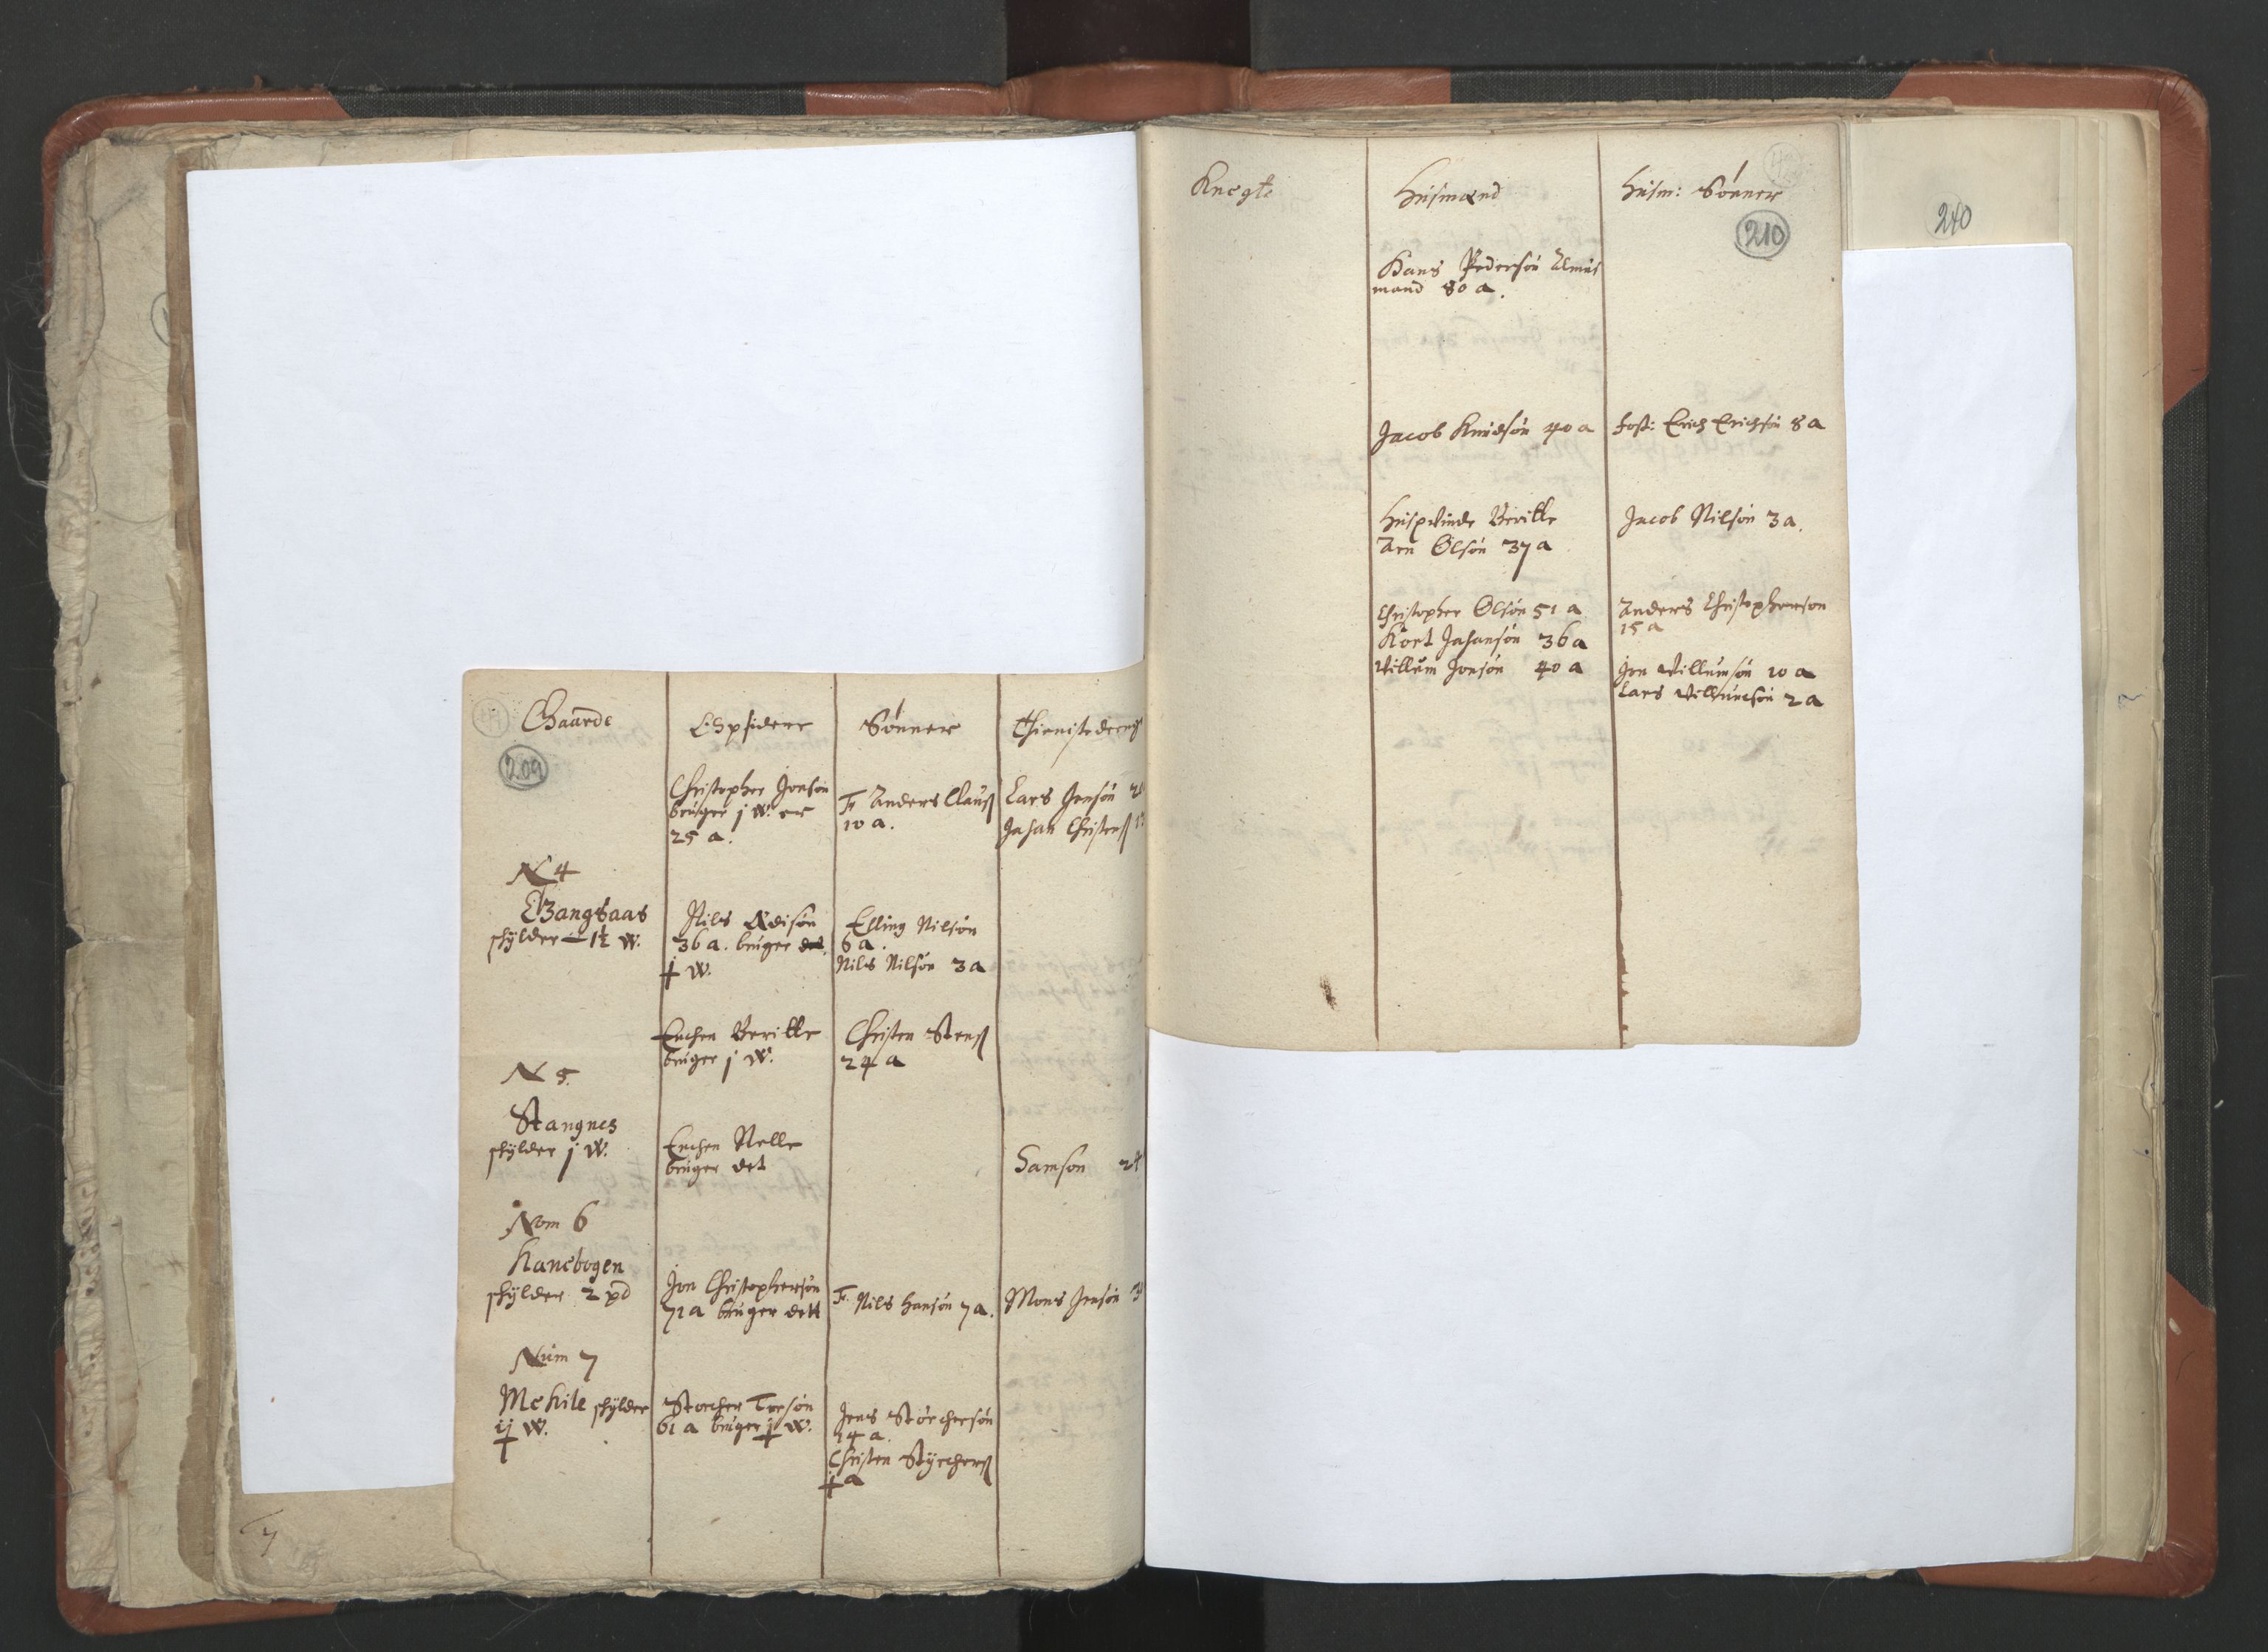 Gaarde
209
Opsidere
Sønner
Thienistedreng
Christopher Jonsøn
bruger j W. er
25 a.
Fr Anders Clauß
10 a.
Lars Jensøn
Jahan Christenß
N 4
Gangsaas
schylder 1½ W.
Nils Adisøn
36 a. bruger det
W.
Elling Nilsøn
6 a.
Nils Nilsøn 3 a
Enchen Beritte
bruger j W.
Christen Stenß
24 a
N 5.
Stangnes
schylder j W.
Enchen Nelle
bruger det
Samson 24
Nom 6
Kanebogen
schylder 2 pd
Jon Christophersøn
71 a bruger dett
Fr. Nils Hansøn 7 a.
Mons Jensøn 3
Num 7
Mekile schylder
ij W.
Storcher Torsøn
61 a bruger j W.
Jens Størchersøn
14 a.
Christen Styrcherß
a
Knegte
Husmænd
Husm: Sønner
210
240
Hans Pedersøn Almis
mand 80 a.
Jacob Knudsøn 40 a
fost: Erich Erichsøn 8 a
Huspvinde Beritte
Arn Olsøn 37 a
Jacob Nilsøn 3 a.
Christopher Olsøn 51 a
Kort Jahansøn 36 a
Villum Jonsøn 40 a
Anders Christopherson
15 a
Jon Villumsøn 10 a
Lars Villumsøn 2 a